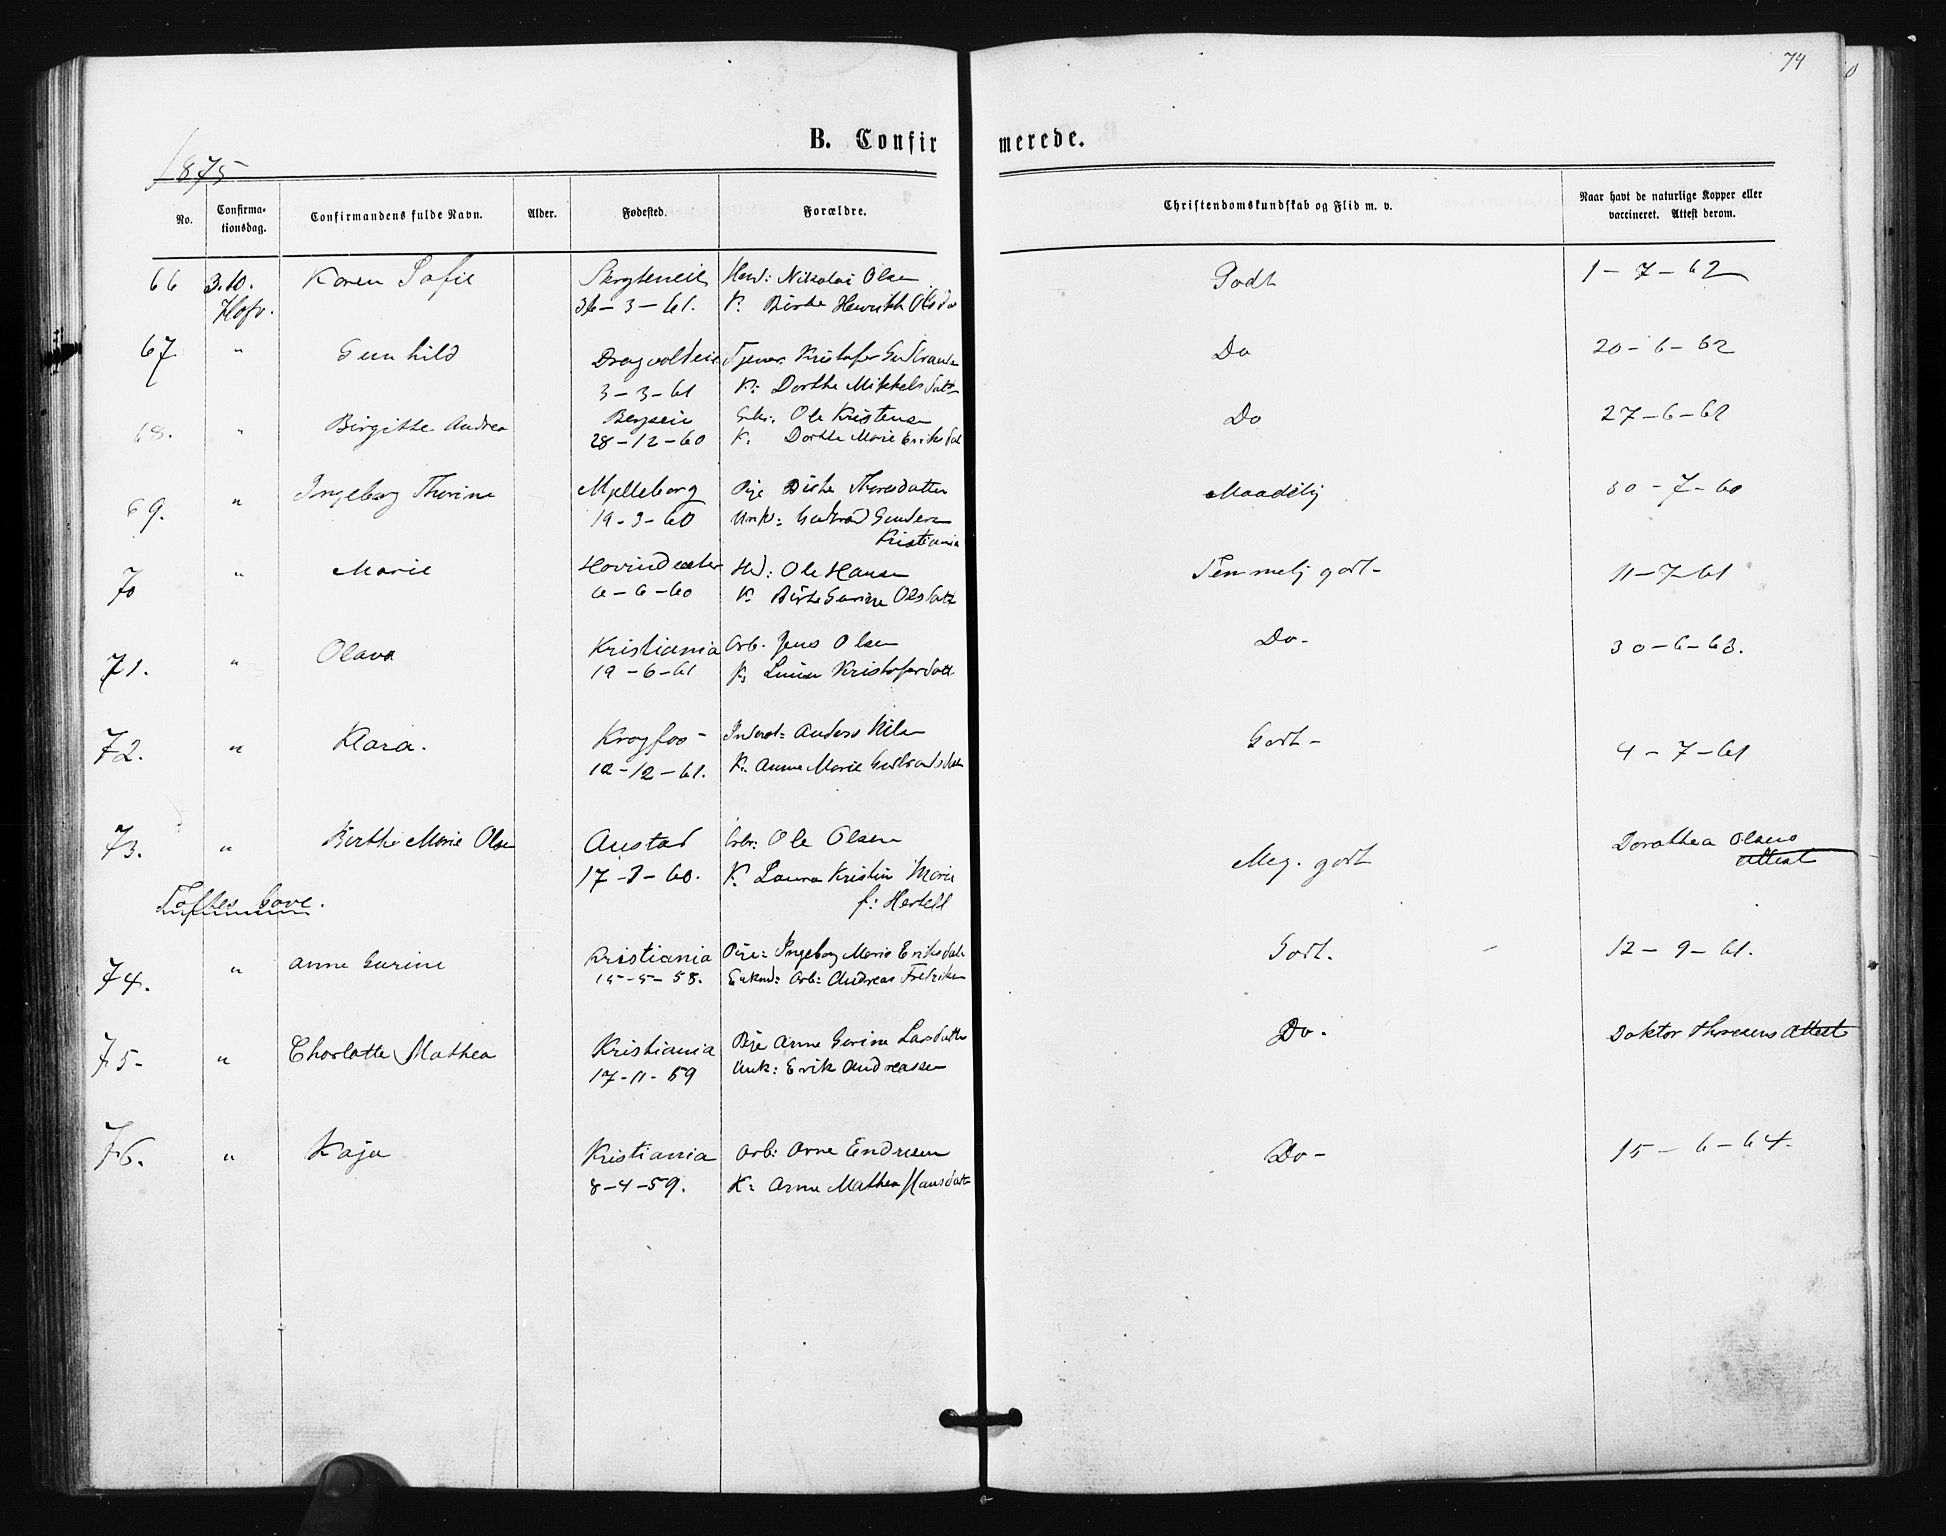 74
B. Confirmerede.
1875
No. Confirmationsdag. Confirmandens fulde Navn. Alder. Fødested. Forældre. Christendomskundskab og Flid m. v. Naar havt de naturlige Kopper eller vaccineret. Attest derom.
66 3.10. Karen Sofie Nikolai Olsen Godt 1-7-62
Hofv. -3-61. K. Birthe
67 " Gunhild Kristofer Do 20-6-62
3-3-61 K: Dorthe Mikkelsdatt
68. " Birgitte Andrea Bergseie Ole Kristensen Do 27-6-61
28-12-60 K. Dorthe Marie Eriksdat
69. " Ingeborg Thorine Mylleborg Pige Birthe Thoresdatter Maadelig 30-7-60
19-3-60 Unk: Gulbrand Gundersen
Kristiania
70 " Marie Ole Hansen Temmelig godt- 11-7-61
6-6-60 K. Birthe Gurine Olsdatt
71. " Olava Kristiania Arb. Jens Olsen Do- 30-6-63.
19-6-61 K. Kristofersdatt
72. " Klara. Krogfos- Anders Nilsen Godt- 4-7-61
12-12-61. K. Anne Marie Gulbrandsdatt
73. " Birthe Marie Olsen Austad Arb: Ole Olsen Meg. godt Dorothea Olsens Attest
17-3-60. K. Laura Kristin Marie
f: Hertell
Toftes Gave.
74. " Anne Gurine Kristiania Pige: Ingeborg Marie Eriksdatt Godt. - 12-9-61.
15-5-58. Enkmd: Arb: Andreas Fredriksen
75- " Charlotte Mathea Kristiania Pige Anne Gurine Larsdatter Do. Doktor Thoresens Attest
17-11-59 Unk: Erik Andreassen
76. " Kaja Kristiania Arb: Arne Endresen Do- 15-6-64.
8-4-59. K: Anne Mathea Hansdatt